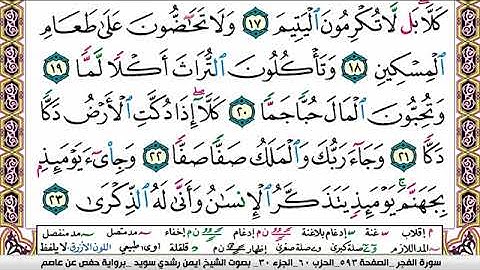 كَلَّا ۖ بَل لَّا تُكْرِمُونَ الْيَتِيمَ ١٧ وَلَا تَحَاضُّونَ عَلَىٰ طَعَامِ
الْمِسْكِينِ ١٨ وَتَأْكُلُونَ التُّرَاثَ أَكْلًا لَّمًّا ١٩
وَتُحِبُّونَ الْمَالَ حُبًّا جَمًّا ٢٠ كَلَّا إِذَا دُكَّتِ الْأَرْضُ دَكًّا
دَكًّا ٢١ وَجَاءَ رَبُّكَ وَالْمَلَكُ صَفًّا صَفًّا ٢٢ وَجِايءَ يَوْمَئِذٍ
بِجَهَنَّمَ ۚ يَوْمَئِذٍ يَتَذَكَّرُ الْإِنسَانُ وَأَنَّىٰ لَهُ الذِّكْرَىٰ ٢٣
م إقلاب غنة إدغام بلاغنة ن م إدغام ن م إخفاء مد متصل مد منفصل
المد اللازم صلة كبرى صلة صغرى إظهار ن م قلقلة اوى طبيعي اللون الأزرق لا يلفظ
سورة الفجر _الصفحة ٥٩٣_ الحزب ٦٠_ الجزء ٣٠_ بصوت الشيخ ايمن رشدي سويد _برواية حفص عن عاصم